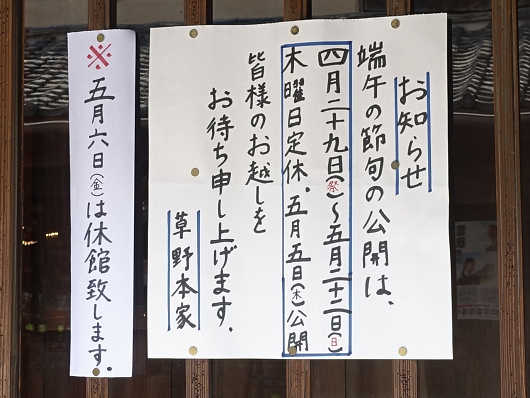 お知らせ
端午の節句の公開は、
四月二十九日(祭)～五月二十二日(日)
木曜日定休。五月五日(木)公開
皆様のお越しを
お待ち申し上げます。
草野本家
※五月六日(金)は休館致します。